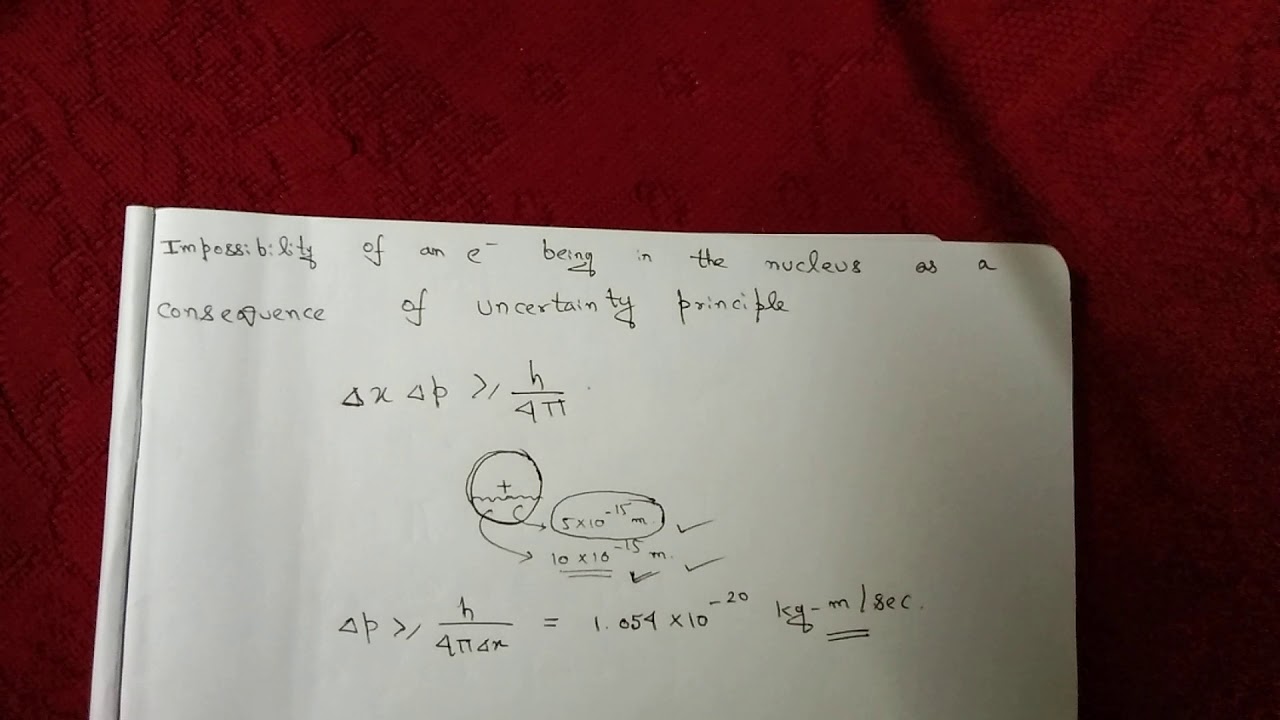 Impossibility of an e⁻ being in the nucleus as a
consequence of uncertainty principle
Δx Δp ≥ h/4π
+
5×10⁻¹⁵ m.
10×10⁻¹⁵ m.
Δp ≥ h/4πΔx = 1.054×10⁻²⁰ kg-m/sec.